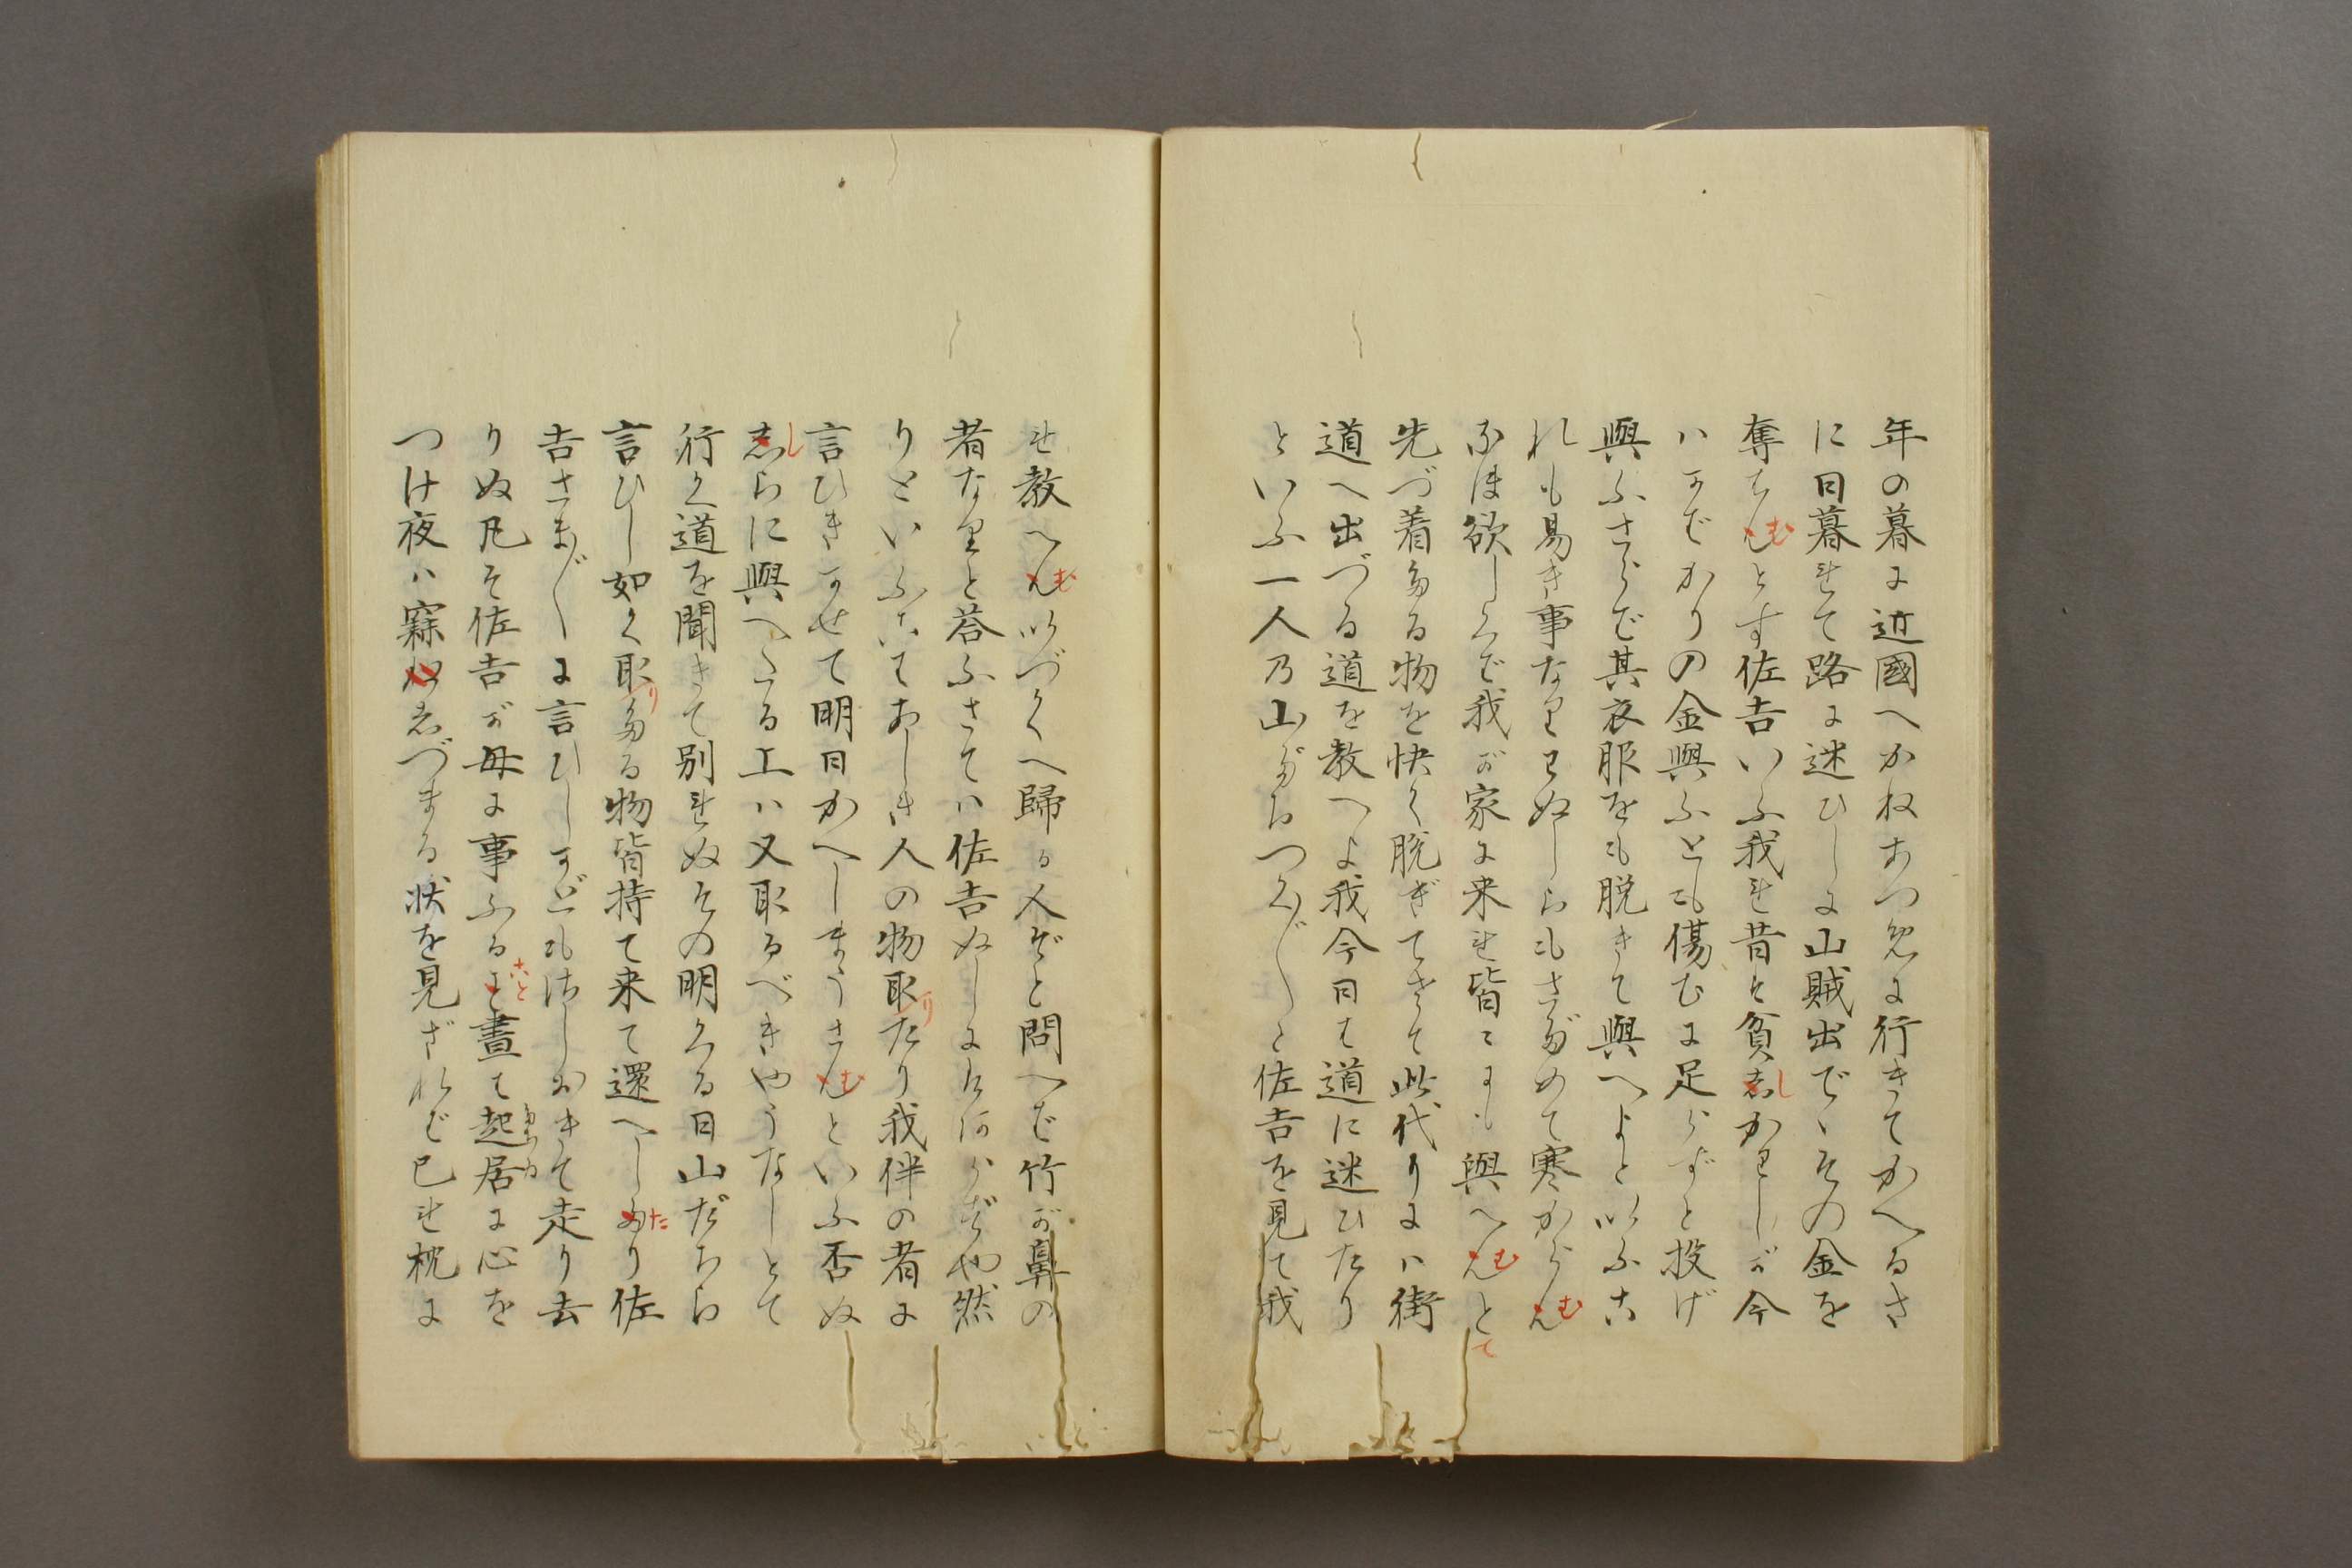 年の暮に近國へかねあつめに行きてかへるさ
に日暮れて路に迷ひしに山賊出で、その金を
奪はむとす佐吉いふ我れ昔は貧しかりしが今
ハかばかりの金與ふとも傷むに足らずと投げ
與ふさらば其衣服をも脱きて與へよといふこ
れも易き事なりぬしらもさだめて寒からむ
なほ欲しくば我が家に来れ皆にも與へむとて
先づ着たる物を快く脱ぎてさて此代りにハ街
道へ出づる道を教へよ我今日は道に迷ひたり
といふ一人の山だちつく〴〵と佐吉を見て我
れ教へむいづくへ歸る人ぞと問へば竹が鼻の
者なりと荅ふさてハ佐吉ぬしにはあらずや然
りといふこてあしき人の物取りたり我伴の者に
言ひきかせて明日かへしまうさむといふ否ぬ
しらに與へたる上ハ又取るべきやうなしとて
行く道を聞きて別れぬその明くる日山だちら
言ひし如く取りたる物皆持て来て還へしたり佐
吉さま〴〵に言ひしかどもはしおきて走り去
りぬ凡そ佐吉が母に事ふること晝は起居に心を
つけ夜ハ寐しづまる状を見ざれば已れ枕に